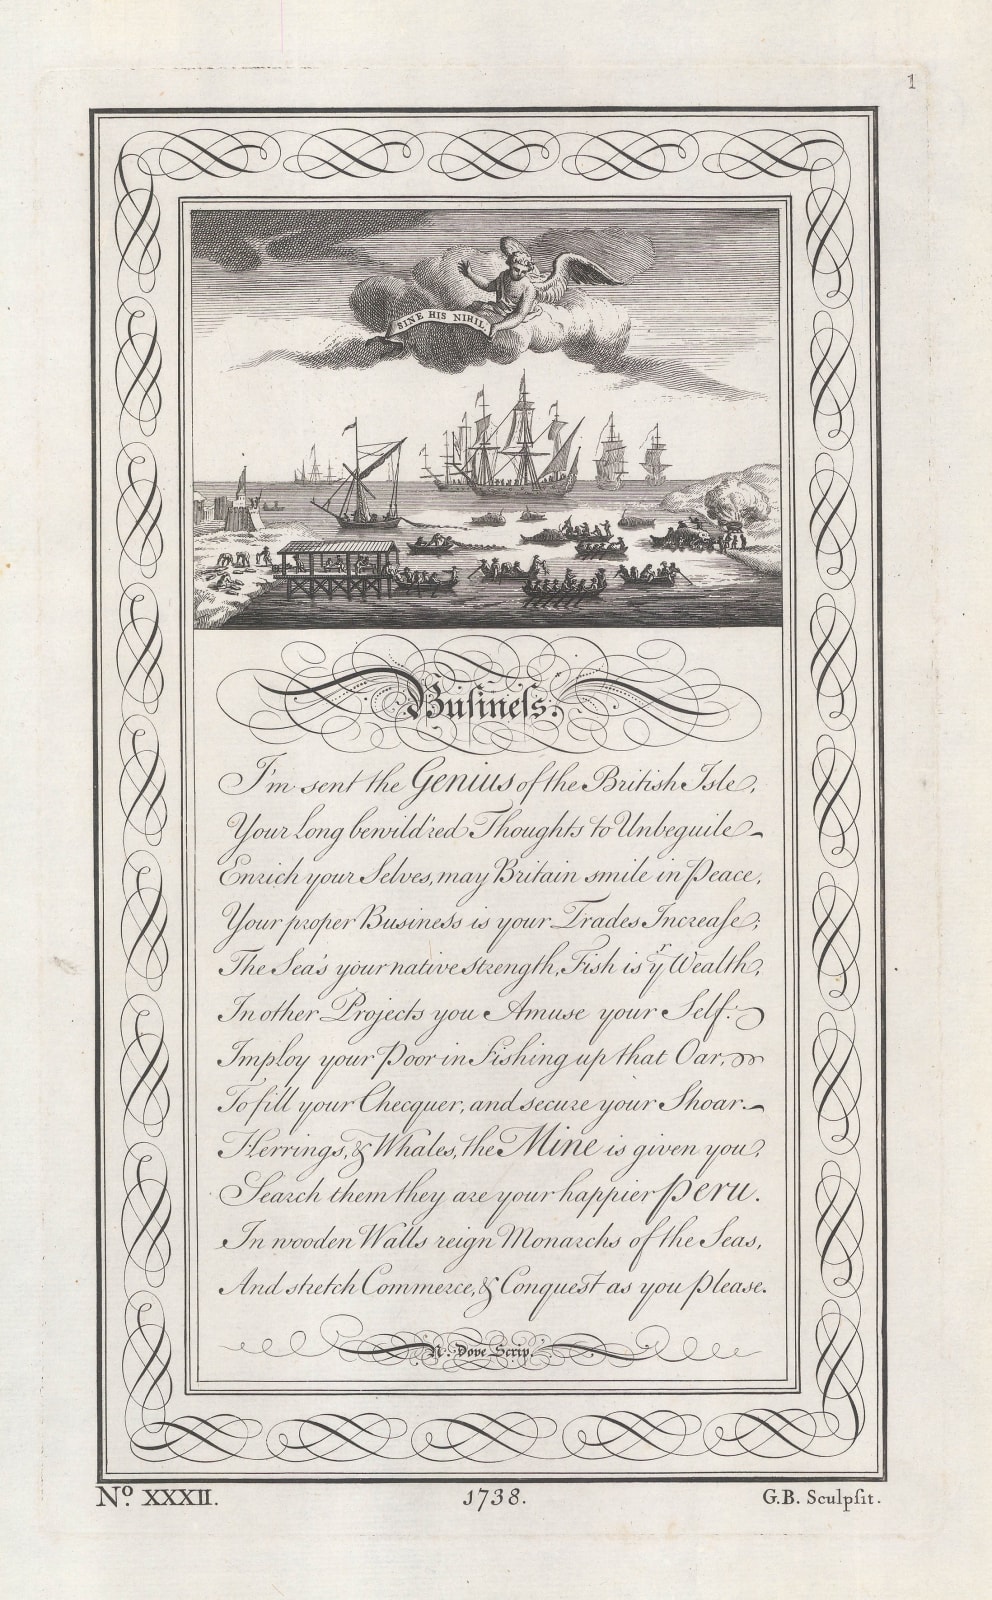 1
SINE HIS NIHIL.
Buſineſs.
I'm sent the Genius of the British Isle,
Your long bewild'red Thoughts to Unbeguile
Enrich your Selves, may Britain smile in Peace,
Your proper Business is your Trades Increaſe;
The Sea's your native strength, Fish is yr Wealth,
In other Projects you Amuse your Self:
Imploy your Poor in Fishing up that Oar,
To fill your Checquer, and secure your Shoar.
Herrings, & Whales, the Mine is given you,
Search them they are your happier Peru.
In wooden Walls reign Monarchs of the Seas,
And stretch Commerce, & Conquest as you please.
N. Dove Scrip.
No. XXXII. 1738. G.B. Sculpſit.